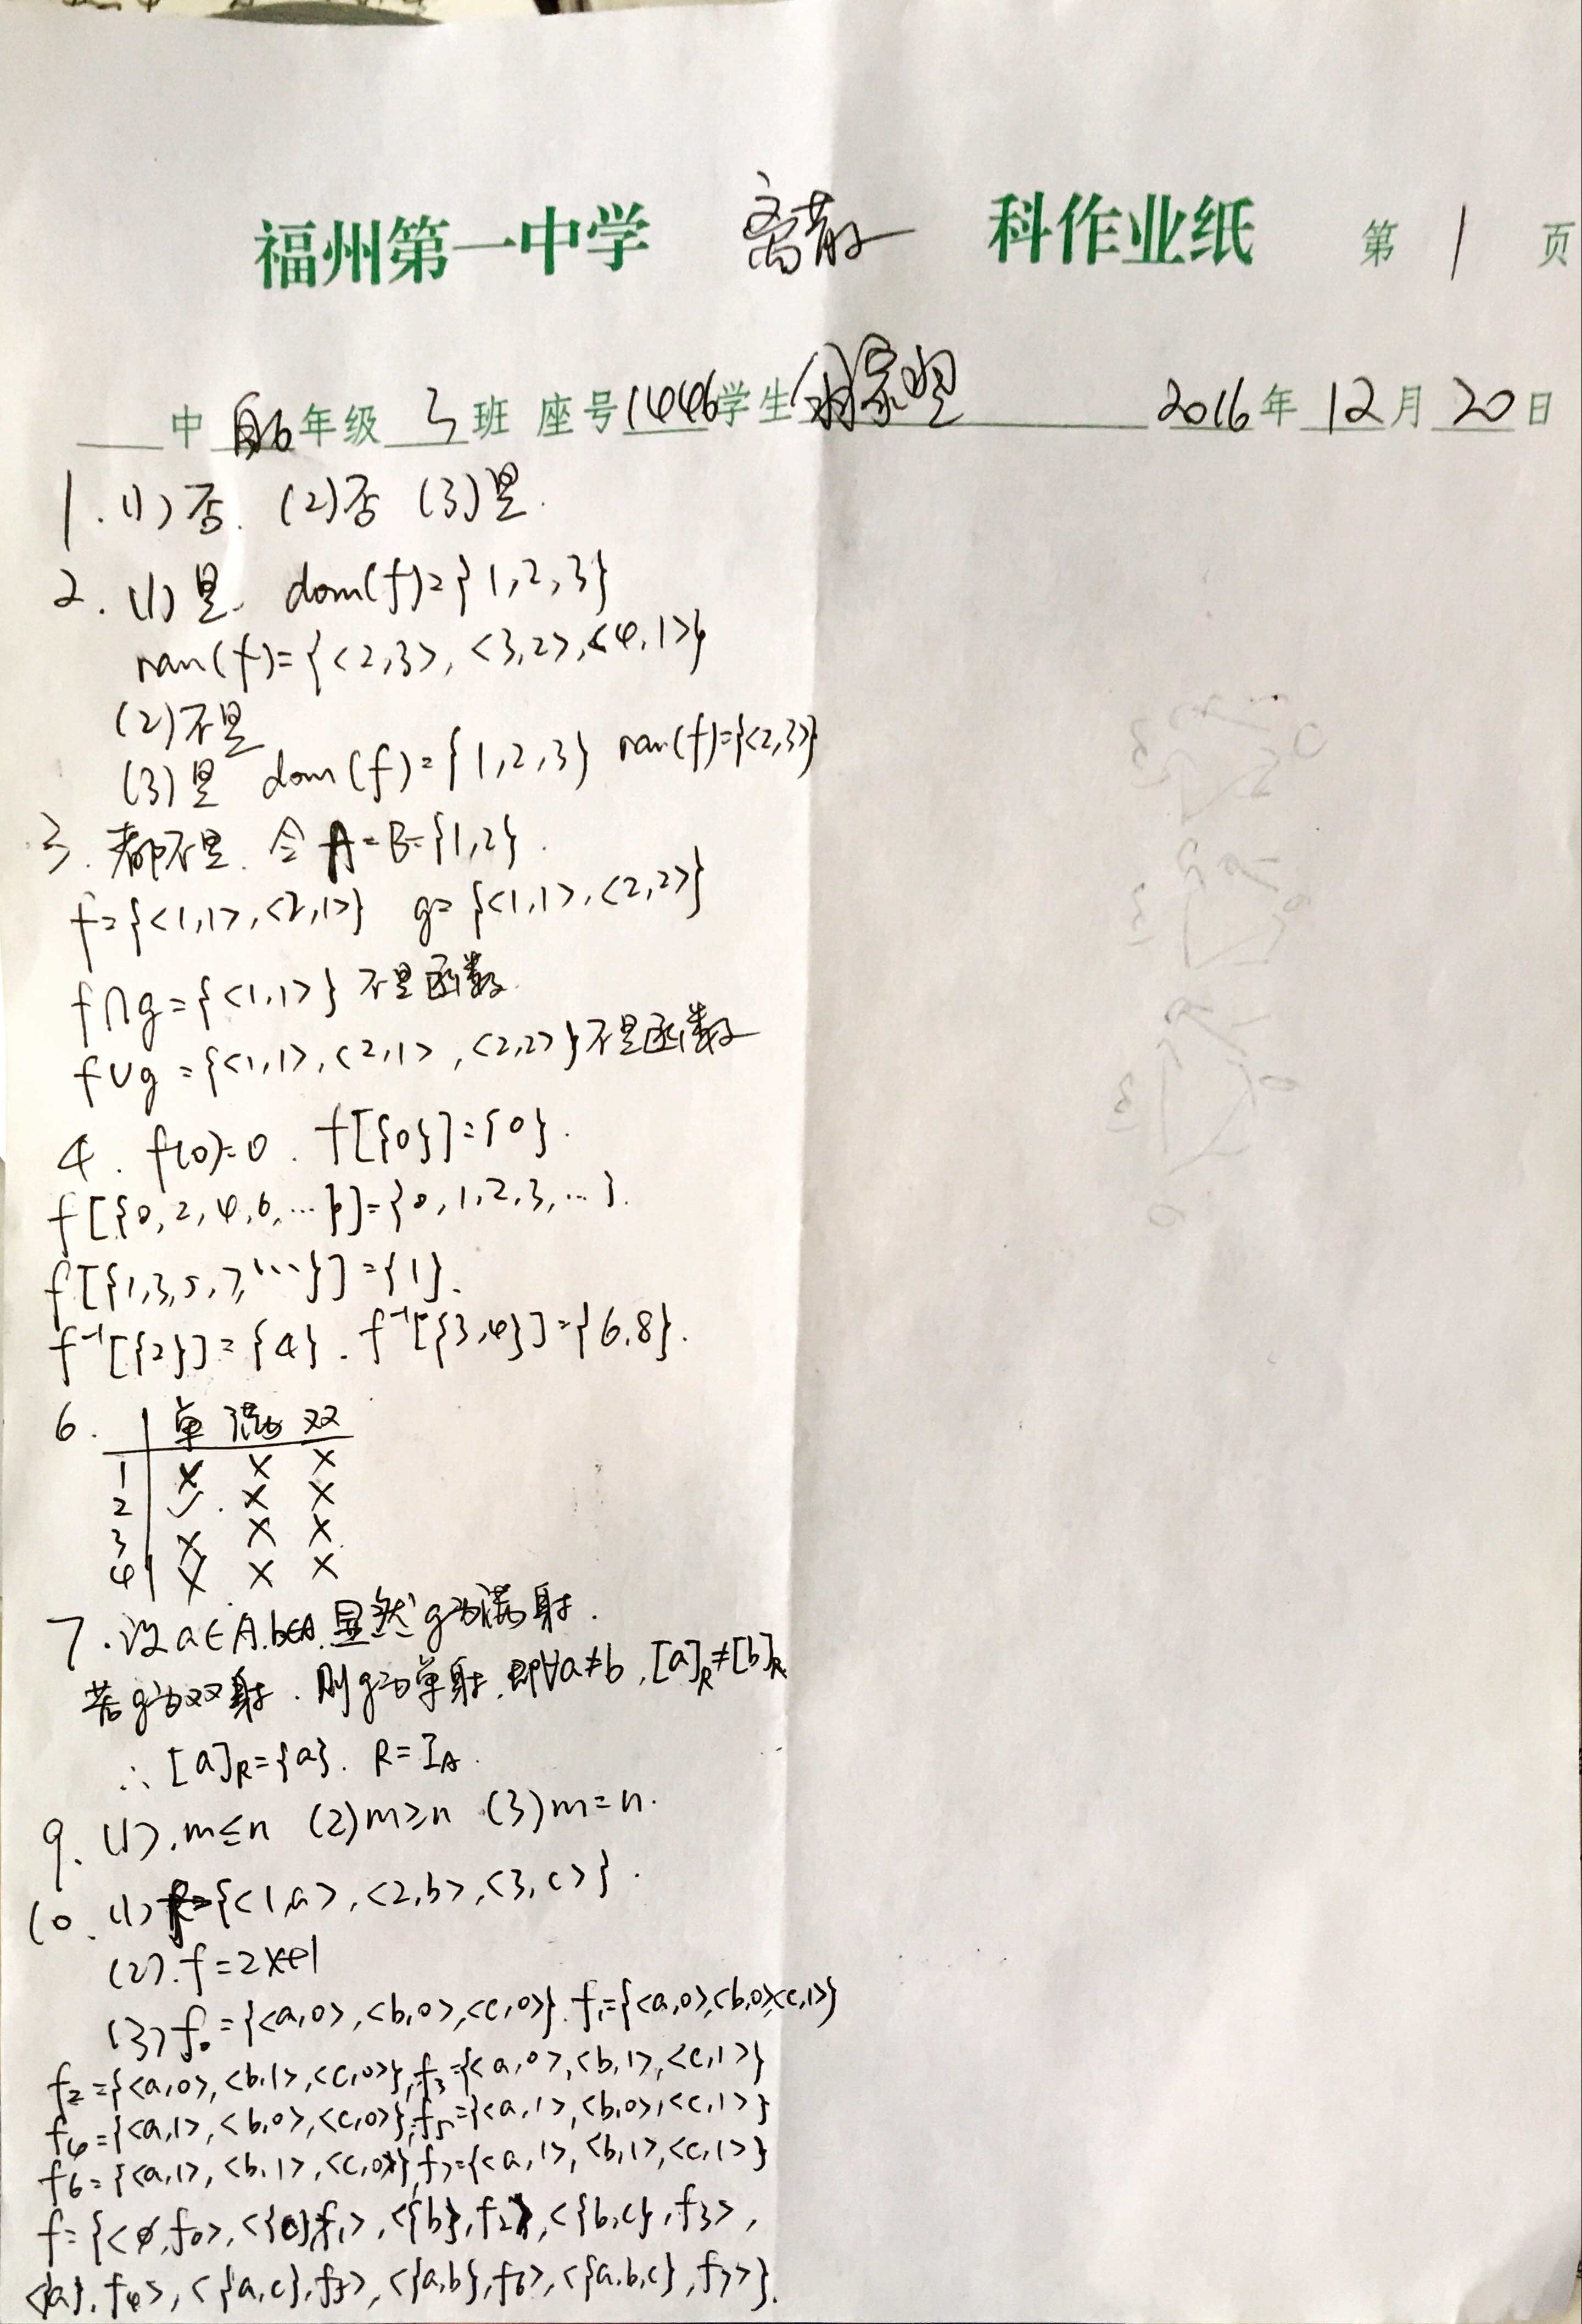 福州第一中学 离散 科作业纸 第 1 页
中 年级 3 班 座号 1446 学生 2016 年 12 月 20 日
1. (1) 否. (2) 否 (3) 是.
2. (1) 是. dom(f)={1,2,3}
ran(f)={<2,3>,<3,2>,<4,1>}
(2) 不是
(3) 是 dom(f)={1,2,3} ran(f)={<2,3>}
3. 都不是. 令 A=B={1,2}.
f={<1,1>,<2,1>} g={<1,1>,<2,2>}
f∩g={<1,1>} 不是函数.
f∪g={<1,1>,<2,1>,<2,2>} 不是函数
4. f(0)=0. f[{0}]={0}.
f[{0,2,4,6,…}]={0,1,2,3,…}.
f[{1,3,5,7,…}]={1}.
f⁻¹[{2}]={4}. f⁻¹[{3,4}]={6,8}.
6. 单 满 双
1 × × ×
2 ✓ × ×
3 × × ×
4 × × ×
7. 设a∈A.b∈A.显然g为满射.
若g为双射.则g为单射.即∀a≠b,[a]R≠[b]R
∴[a]R={a}. R=IA.
9. (1).m≤n (2)m≥n (3)m=n.
10. (1) f={<1,a>,<2,b>,<3,c>}.
(2).f=2x+1
(3) f₀={<a,0>,<b,0>,<c,0>}.f₁={<a,0>,<b,0>,<c,1>}
f₂={<a,0>,<b,1>,<c,0>},f₃={<a,0>,<b,1>,<c,1>}
f₄={<a,1>,<b,0>,<c,0>},f₅={<a,1>,<b,0>,<c,1>}
f₆={<a,1>,<b,1>,<c,0>},f₇={<a,1>,<b,1>,<c,1>}
f={<∅,f₀>,<{c},f₁>,<{b},f₂>,<{b,c},f₃>,
<{a},f₄>,<{a,c},f₅>,<{a,b},f₆>,<{a,b,c},f₇>}.